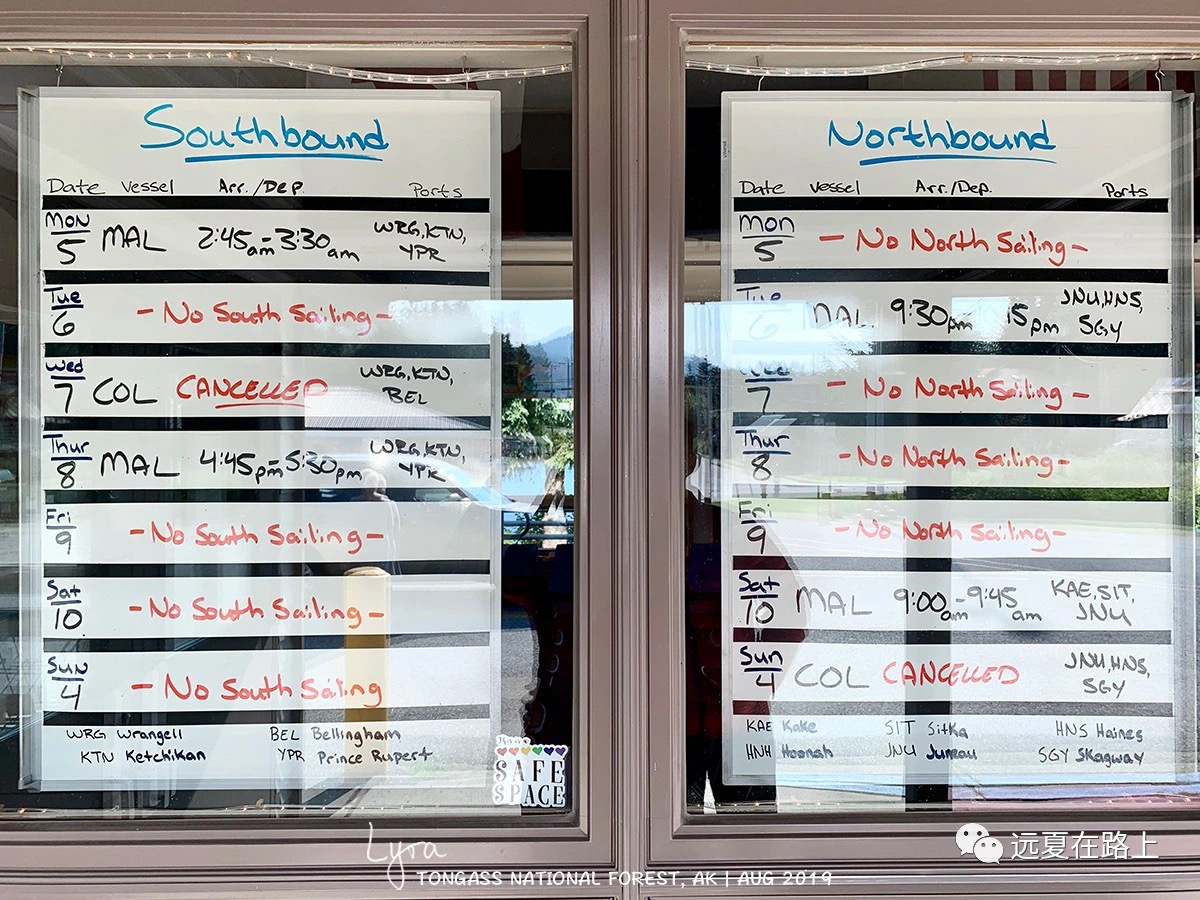 Southbound
Date Vessel Arr./Dep. Ports
Mon 5 MAL 2:45am-3:30am WRG,KTN, YPR
Tue 6 - No South Sailing -
Wed 7 COL CANCELLED WRG,KTN, BEL
Thur 8 MAL 4:45pm-5:30pm WRG,KTN, YPR
Fri 9 - No South Sailing -
Sat 10 - No South Sailing -
Sun 4 - No South Sailing
WRG Wrangell BEL Bellingham
KTN Ketchikan YPR Prince Rupert
SAFE
SPACE
Northbound
Date Vessel Arr./Dep. Ports
Mon 5 - No North Sailing -
Tue 6 MAL 9:30pm 15pm JNU,HNS, SGY
Wed 7 - No North Sailing -
Thur 8 - No North Sailing -
Fri 9 - No North Sailing -
Sat 10 MAL 9:00am-9:45am KAE,SIT, JNU
Sun 4 COL CANCELLED JNU,HNS, SGY
KAE Kake SIT Sitka HNS Haines
HNH Hoonah JNU Juneau SGY Skagway
远夏在路上
Lyra
TONGASS NATIONAL FOREST, AK | AUG 2019